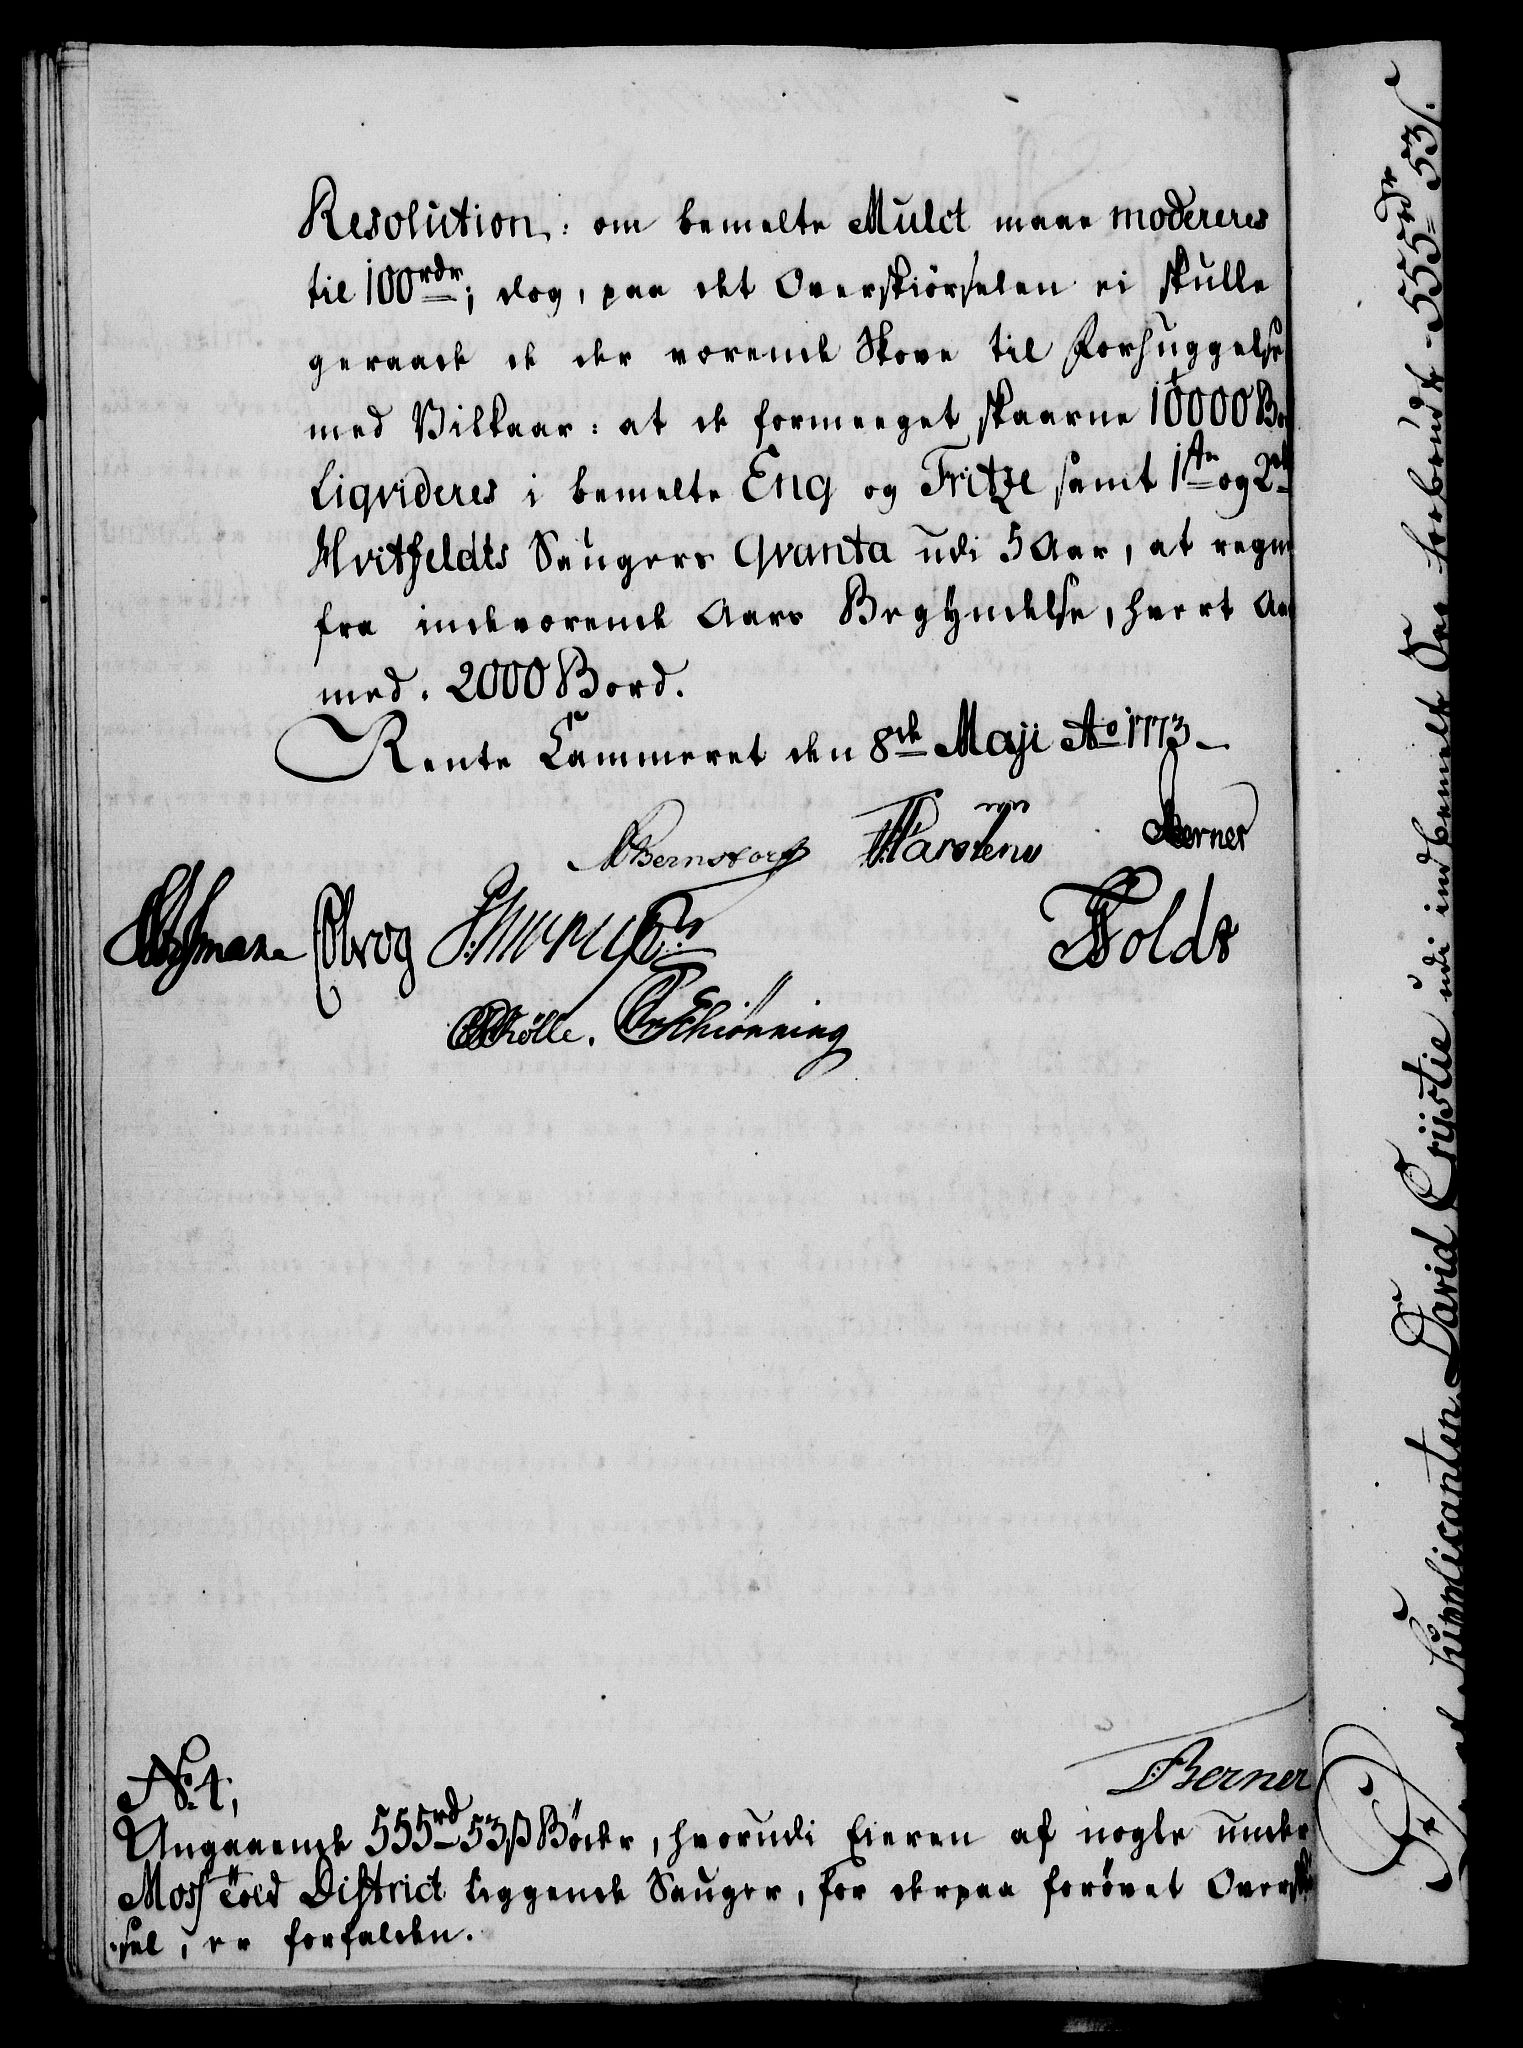 Resolution: om bemelte Mulct maae modereres
til 100 rdr; dog, paa det Overskiørselen ei skulle
geraade de der værende Skove til Forhuggelse
med Vilkaar: at de formeeget skaarne 10000 Bo
Liqvideres i bemelte Eng og Fritze samt 1ste og 2de
Hvitfeldts Saugers Qvanta udi 5 Aar, at regne
fra indeværende Aars Begyndelse, hvert Aa
med 2000 Bord.
Rente Cammeret den 8de Maji Ao 1773
Bernstorff Martens Berner
Olrog Holdt
Schiønning
Berner
No. 4,
Angaaende 555 rd 53 ß Bøder, hvorudi Eieren af nogle under
Moss Told District liggende Sauger, for derpaa forøvet Overskiø
sel, er forfalden.
Supplicanten David Cristie udi indbemelte Sag 555 rdr 53 ß.